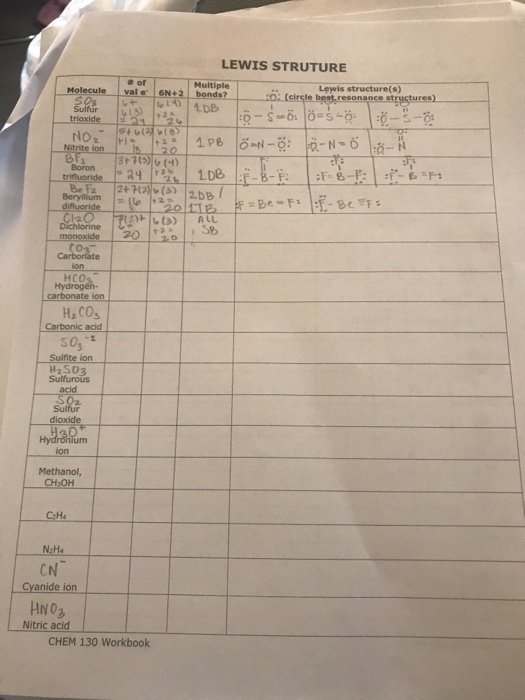 LEWIS STRUTURE
Molecule # of val e⁻ 6N+2 Multiple bonds? Lewis structure(s) (circle best resonance structures)
SO3 6+ 6(4) 1DB
Sulfur 6(3) +2=
trioxide = 24 26
NO2⁻ 5+6(2) 6(3) 1DB
Nitrite ion +1= 18 +2= 20
BF3 3+7(3) 6(4)
Boron = 24 +2= 1DB
trifluoride 26
BeF2 2+7(2) 6(3) 2DB/
Beryllium = 16 +2= 1TB F=Be=F :F-Be≡F:
difluoride 20
Cl2O 7(2)+ 6(3) ALL
Dichlorine +2= SB
monoxide 20 20
CO3⁻
Carbonate
ion
HCO3⁻
Hydrogen-
carbonate ion
H2CO3
Carbonic acid
SO3⁻²
Sulfite ion
H2SO3
Sulfurous
acid
SO2
Sulfur
dioxide
H3O⁺
Hydronium
ion
Methanol,
CH3OH
C2H4
N2H4
CN⁻
Cyanide ion
HNO3
Nitric acid
CHEM 130 Workbook